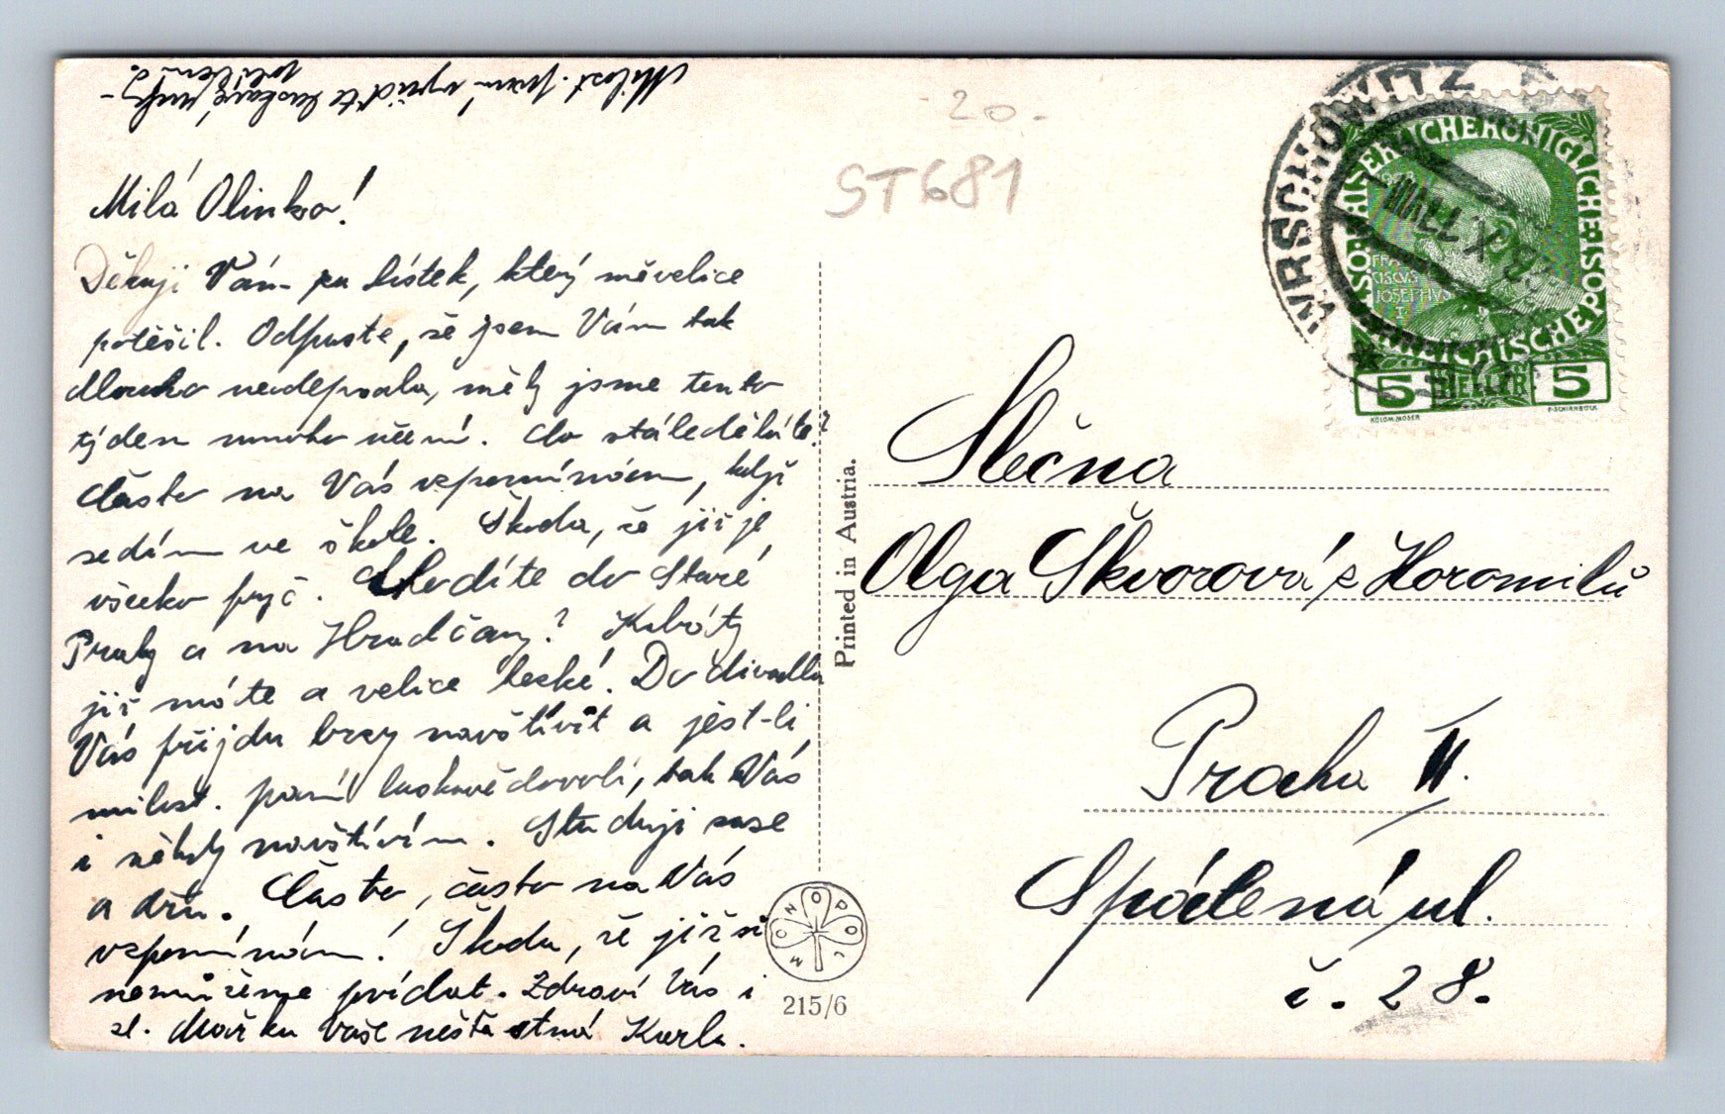 Milost. paní vyřiďte laskavě ruky-
políbení.
Milá Olinko!
Děkuji Vám za lístek, který mě velice
potěšil. Odpusťte, že jsem Vám tak
dlouho neodepsala, měly jsme tento
týden mnoho učení. Co stále děláte?
Často na Vás vzpomínám, když
sedám ve škole. Škoda, že již je
všecko pryč. Chodíte do Staré
Prahy a na Hradčany? Kabáty
již máte a velice hezké. Do divadla
Vás přijdu brzy navštívit a jest-li
milost. paní laskavě dovolí, tak Vás
i někdy navštívím. Studuji zase
a dřu. Často, často na Vás
vzpomínám! Škoda, že již si
nemůžeme povídat. Zdraví Vás i
sl. Mařku Vaše nešťastná Karla.
-20.-
ST681
WRSCHOWITZ
KAISERLICHEKÖNIGLICHE
ÖSTERREICHISCHE POST
1908
FRAN
CISCUS
JOSEPHVS
I
5 HELLER 5
KOLOM.MOSER
F.SCHIRNBÖCK
Slečna
Olga Škvorová z Horomilů
Praha II.
Spálená ul.
č. 28.
Printed in Austria.
MONOPOL
215/6